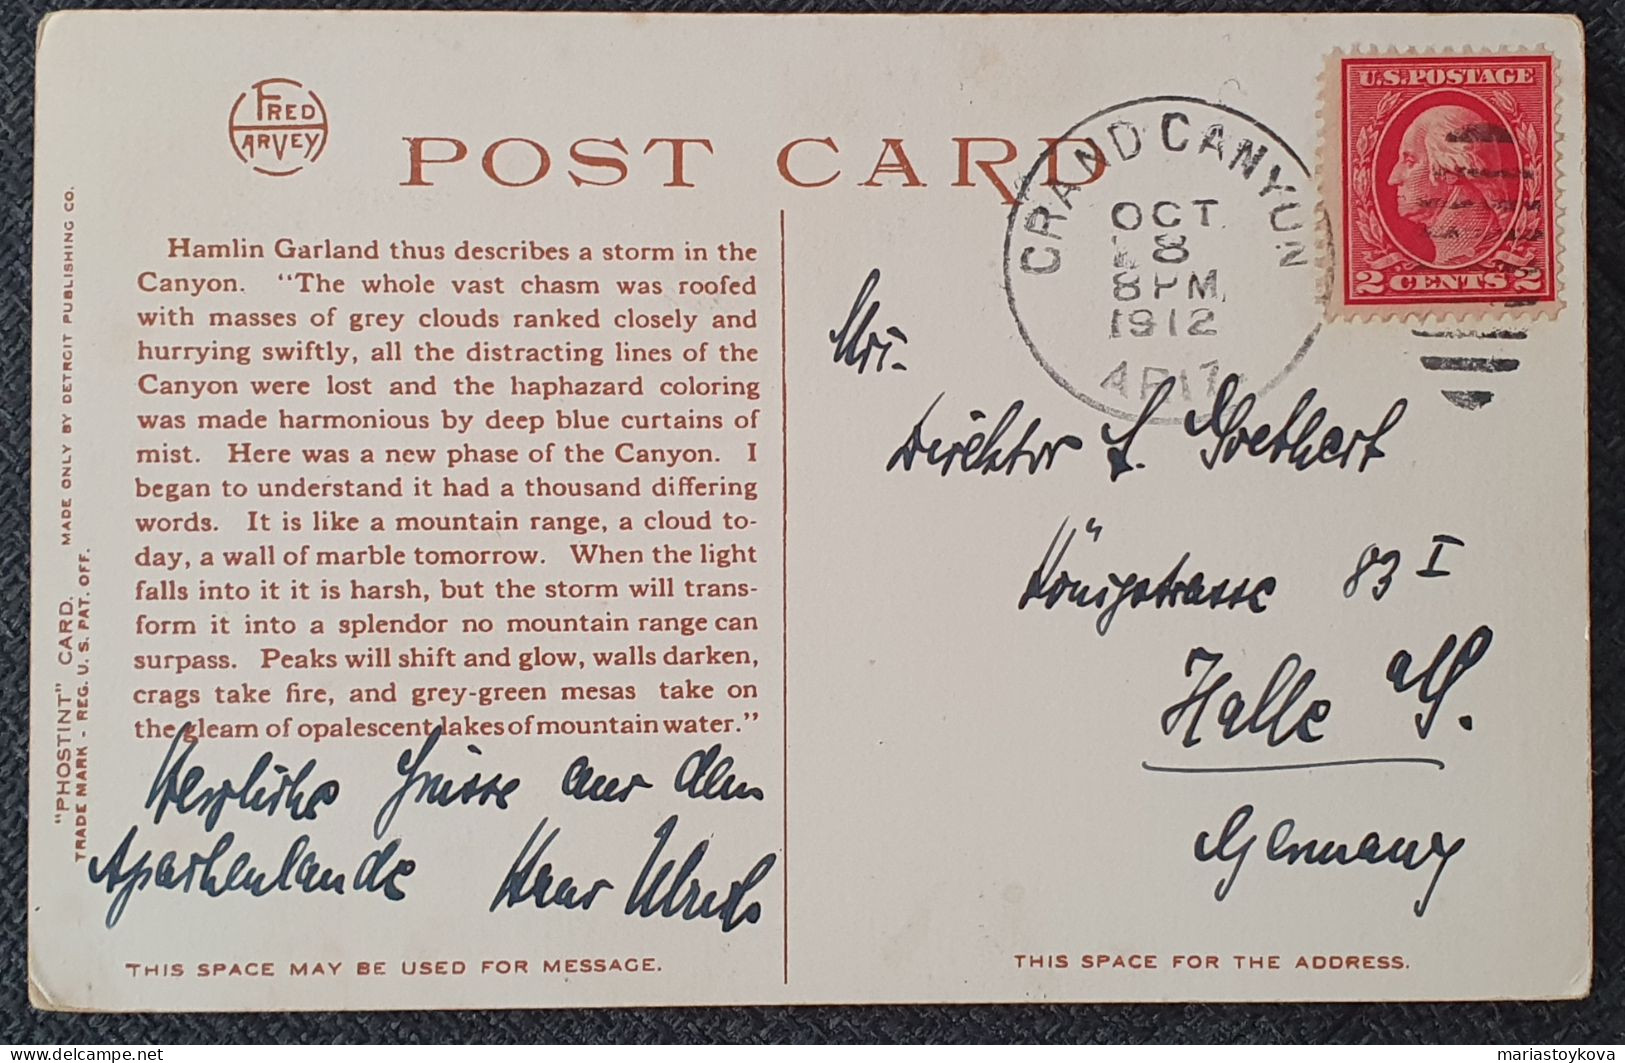 FRED
HARVEY
POST CARD
GRAND CANYON
OCT
8
8 PM
1912
ARIZ
U.S. POSTAGE
2 CENTS 2
Hamlin Garland thus describes a storm in the
Canyon. "The whole vast chasm was roofed
with masses of grey clouds ranked closely and
hurrying swiftly, all the distracting lines of the
Canyon were lost and the haphazard coloring
was made harmonious by deep blue curtains of
mist. Here was a new phase of the Canyon. I
began to understand it had a thousand differing
words. It is like a mountain range, a cloud to-
day, a wall of marble tomorrow. When the light
falls into it it is harsh, but the storm will trans-
form it into a splendor no mountain range can
surpass. Peaks will shift and glow, walls darken,
crags take fire, and grey-green mesas take on
the gleam of opalescent lakes of mountain water."
"PHOSTINT" CARD. MADE ONLY BY DETROIT PUBLISHING CO.
TRADE MARK - REG. U. S. PAT. OFF.
Herzliche Grüsse aus dem
Apachenlande Hans Ulrich
THIS SPACE MAY BE USED FOR MESSAGE.
Direktor
Königstrasse 83 I
Halle a/S.
Germany
THIS SPACE FOR THE ADDRESS.
delcampe.net
mariastoykova